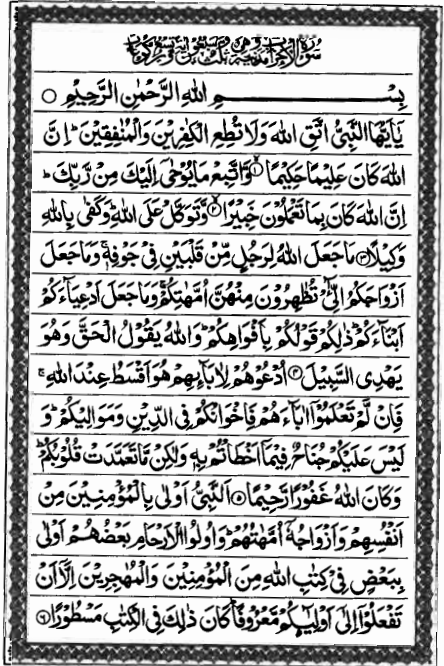 سُوْرَةُ الْاَحْزَابِ مَدَنِيَّةٌ وَّهِيَ ثَلٰثٌ وَّسَبْعُوْنَ اٰيَةً وَّتِسْعُ رُكُوْعَاتٍ
بِسْــــــــــمِ اللّٰهِ الرَّحْمٰنِ الرَّحِيْمِ ○
يٰۤاَيُّهَا النَّبِيُّ اتَّقِ اللّٰهَ وَلَا تُطِعِ الْكٰفِرِيْنَ وَالْمُنٰفِقِيْنَ ؕ اِنَّ
اللّٰهَ كَانَ عَلِيْمًا حَكِيْمًا ۙ﴿۱﴾ وَّاتَّبِعْ مَا يُوْحٰۤى اِلَيْكَ مِنْ رَّبِّكَ ؕ
اِنَّ اللّٰهَ كَانَ بِمَا تَعْمَلُوْنَ خَبِيْرًا ۙ﴿۲﴾ وَّتَوَكَّلْ عَلَى اللّٰهِ ؕ وَكَفٰى بِاللّٰهِ
وَكِيْلًا ﴿۳﴾ مَا جَعَلَ اللّٰهُ لِرَجُلٍ مِّنْ قَلْبَيْنِ فِيْ جَوْفِهٖ ۚ وَمَا جَعَلَ
اَزْوَاجَكُمُ الّٰٓـِٔيْ تُظٰهِرُوْنَ مِنْهُنَّ اُمَّهٰتِكُمْ ۚ وَمَا جَعَلَ اَدْعِيَآءَكُمْ
اَبْنَآءَكُمْ ؕ ذٰلِكُمْ قَوْلُكُمْ بِاَفْوَاهِكُمْ ؕ وَاللّٰهُ يَقُوْلُ الْحَقَّ وَهُوَ
يَهْدِي السَّبِيْلَ ﴿۴﴾ اُدْعُوْهُمْ لِاٰبَآئِهِمْ هُوَ اَقْسَطُ عِنْدَ اللّٰهِ ۚ
فَاِنْ لَّمْ تَعْلَمُوْۤا اٰبَآءَهُمْ فَاِخْوَانُكُمْ فِي الدِّيْنِ وَمَوَالِيْكُمْ ؕ وَ
لَيْسَ عَلَيْكُمْ جُنَاحٌ فِيْمَاۤ اَخْطَاْتُمْ بِهٖ ۙ وَلٰكِنْ مَّا تَعَمَّدَتْ قُلُوْبُكُمْ ؕ
وَكَانَ اللّٰهُ غَفُوْرًا رَّحِيْمًا ﴿۵﴾ اَلنَّبِيُّ اَوْلٰى بِالْمُؤْمِنِيْنَ مِنْ
اَنْفُسِهِمْ وَاَزْوَاجُهٗۤ اُمَّهٰتُهُمْ ؕ وَاُولُوا الْاَرْحَامِ بَعْضُهُمْ اَوْلٰى
بِبَعْضٍ فِيْ كِتٰبِ اللّٰهِ مِنَ الْمُؤْمِنِيْنَ وَالْمُهٰجِرِيْنَ اِلَّاۤ اَنْ
تَفْعَلُوْۤا اِلٰۤى اَوْلِيٰٓئِكُمْ مَّعْرُوْفًا ؕ كَانَ ذٰلِكَ فِي الْكِتٰبِ مَسْطُوْرًا ﴿۶﴾